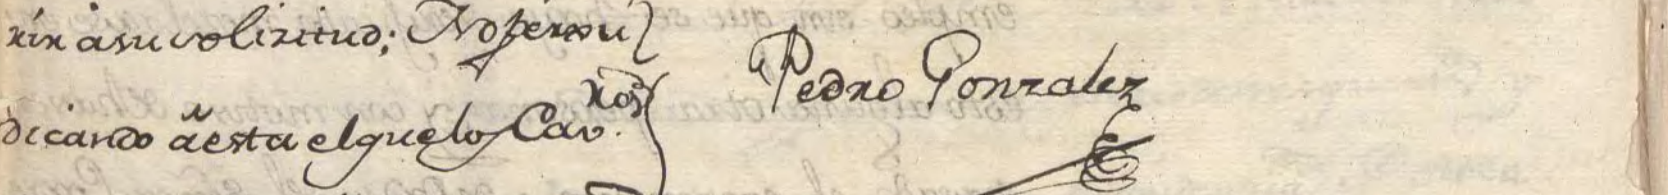 rir a su solizitud; No perxui
dicando a esta el que los Cav.ros
Pedro Gonzalez